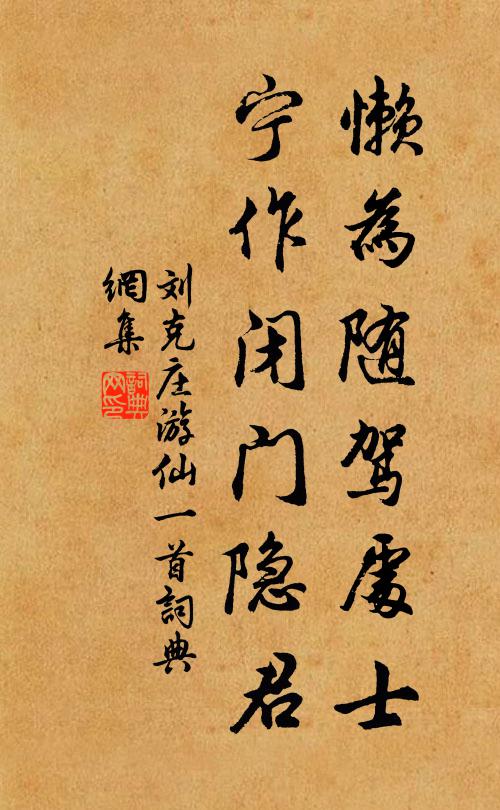 懒為随驾處士
宁作闭门隐君
刘克庄游仙一首詞典
網集
詞典
网印